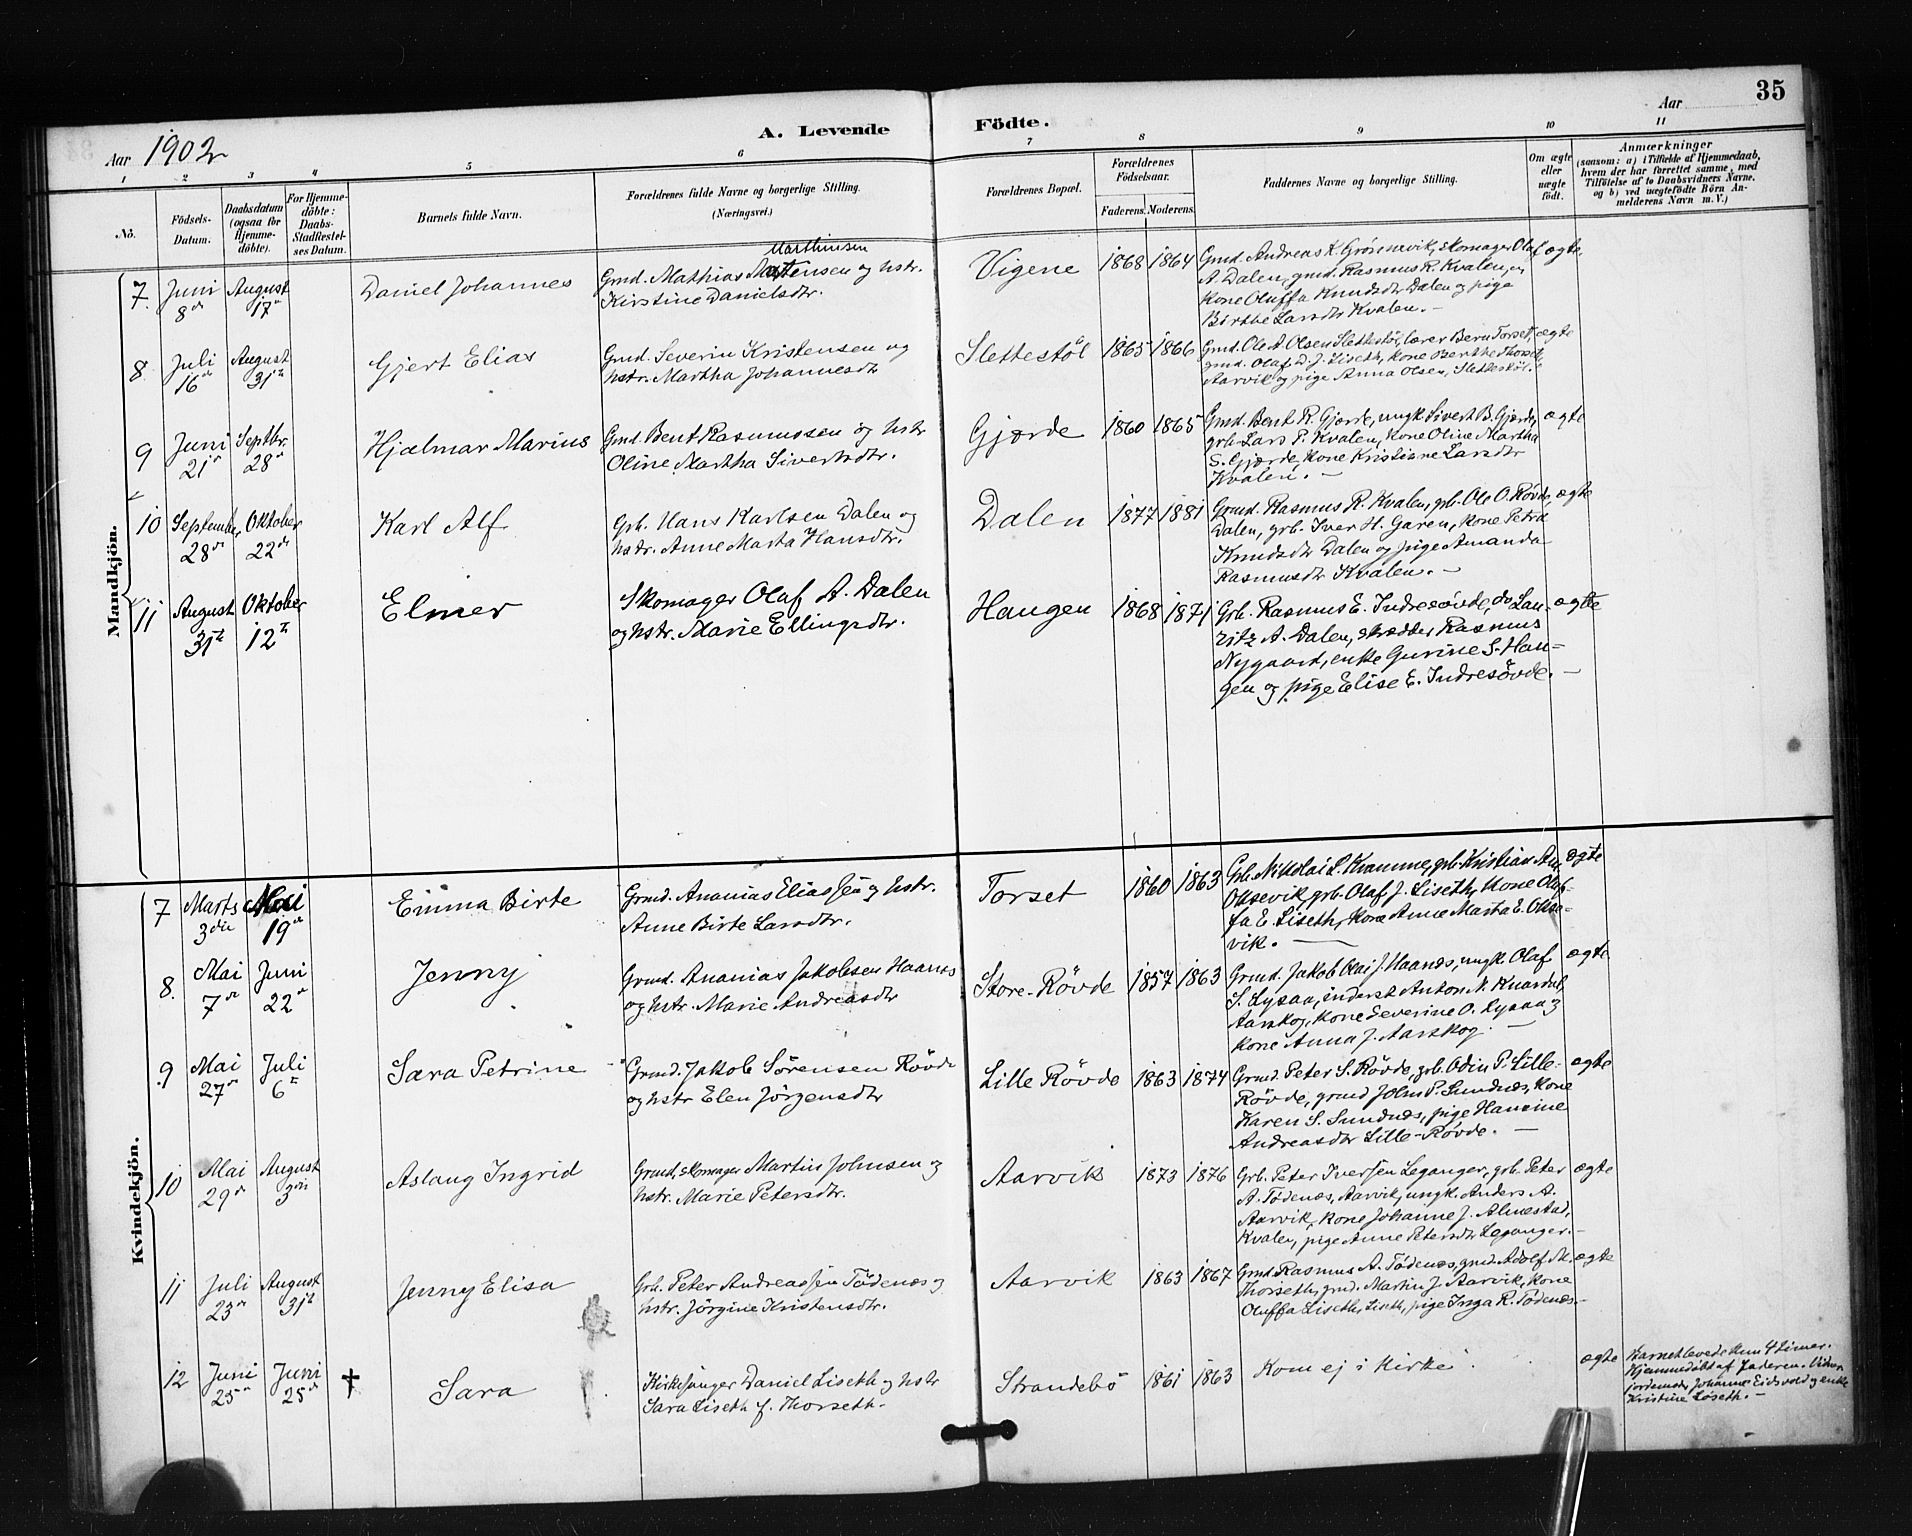 35
Aar 1902
A. Levende Födte.
Aar
1 2 3 4 5 6 7 8 9 10 11
No.
Födsels-Datum.
Daabsdatum (ogsaa for Hjemme-döbte).
For Hjemme-döbte: Daabs-Stadfæstel-ses Datum.
Barnets fulde Navn.
Forældrenes fulde Navne og borgerlige Stilling.
(Næringsvei.)
Forældrenes Bopæl.
Forældrenes Födselsaar.
Faderens. Moderens.
Faddernes Navne og borgerlige Stilling.
Om ægte eller uægte födt.
Anmærkninger
(saasom: a) i Tilfælde af Hjemmedaab,
hvem der har forrettet samme, med
Tilföielse af to Daabsvidners Navne.
og b) ved uægtefödte Börn An-
melderens Navn m. V.)
Mandkjön.
7. Juni 8de August 17de Daniel Johannes
Marthinsen
Grmd. Mathias Martensen og hstr.
Kirstine Danielsdtr.
Vigene 1868 1864
Gmd. Andreas K. Grönnevik, skomager Olaf
A. Dalen, gmd. Rasmus R. Kvalen, og
kone Oluffa Knudsdtr Dalen og pige
Birthe Larsdtr Kvalen. –
ægte.
8 Juli 16de August 31te Gjert Elias
Gmd. Severin Kristensen og
hstr. Martha Johannesdtr
Slettestöl 1865 1866
Gmd. Ole A. Olsen Slettestöl, lærer Bern Torset,
gmd. Olaf D. J. Liseth, kone Berthe Thorset
Aarvik og pige Anna Olsen, Slettestöl.
ægte
9 Juni 21de Septbr. 28de Hjalmar Marius
Gmd. Bent Rasmussen og hstr
Oline Martha Sivertsdtr.
Gjærde 1860 1865
Gmd. Bent R. Gjærde, ungk. Sivert B. Gjærde,
grb. Lars P. Kvalen, kone Oline Martha
S. Gjærde, kone Kristiane Larsdtr
Kvalen. –
ægte
10 September 28de Oktober 22de Karl Alf
Grb. Hans Karlsen Dalen og
hstr. Anne Marta Hansdtr.
Dalen 1877 1881
Grmd. Rasmus R. Kvalen, grb. Ole O. Rövde,
Dalen, grb. Iver H. Garen, kone Petra
Knudsdtr Dalen og pige Amanda
Rasmusdtr Kvalen. –
ægte
11 August 31te Oktober 12te Elmer
Skomager Olaf A. Dalen
og hstr. Marie Ellingsdtr.
Haugen 1868 1871
Grb. Rasmus E. Indresövde, do Lau-
ritz A. Dalen, skrædder Rasmus
Nygaard, enke Gurine S. Hau-
gen og pige Elise E. Indresövde. –
ægte
Kvindekjön.
7 Marts 3die Mai 19de Emma Birte
Grmd. Ananias Eliassen og hstr.
Anne Birte Larsdtr.
Torset 1860 1863
Grb. Nikolai L. Kvamme, grb. Kristian An.
Oksevik, grb. Olaf J. Liseth, kone Olaf-
fa E. Liseth, kone Anne Marta E. Okse-
vik. –
ægte
8. Mai 7de Juni 22de Jenny
Grmd. Ananias Jakobsen Haanes
og hstr. Marie Andreasdtr
Store-Rövde 1857 1863
Grmd. Jakob Olai J. Haanes, ungk. Olaf
S. Lysaa, inderst Anton N. Knardal,
Aarskog, kone Severine O. Lysaa og
kone Anna J. Aarskog. –
ægte
9 Mai 27de Juli 6te Sara Petrine
Grmd. Jakob Sörensen Rövde
og hstr Elen Jörgensdtr
Lille Rövde 1863 1874
Grmd. Peter S. Rövde, grb. Odin P. Lille-
Rövde, grmd John P. Sundnæs, kone
Karen S. Sundnæs, pige Hansine
Andreasdtr Lille-Rövde. –
ægte
10 Mai 29de August 3die Aslaug Ingrid
Grmd. skomager Martin Johnsen og
hstr. Marie Petersdtr.
Aarvik 1873 1876
Grb. Peter Iversen Leganger, grb. Peter
A. Tödenæs, Aarvik, ungk. Anders A.
Aarvik, kone Johanne J. Almestad,
Kvalen, pige Anne Petersdtr Leganger. –
ægte
11 Juli 23de August 31te Jenny Elisa
Grb. Peter Andreassen Tödenæs og
hstr. Jörgine Kristensdtr.
Aarvik 1863 1867
Gmd. Rasmus A. Tödenæs, gmd. Adolf M.
Thorseth, gmd. Martin J. Aarvik, kone
Oluffa Liseth, Liseth, pige Inga R. Tödenæs. –
ægte
12 Juni 25de Juni 25de † Sara
Kirkesanger Daniel Liseth og hstr
Sara Liseth f. Thorseth.
Strandebö 1861 1863
Kom ej i Kirke
ægte
Barnet levede kun 4 timer.
Hjemmedöbt af Faderen. Vidner
jordemdr. Johanne Eidsvold og enke
Kristine Löseth. –